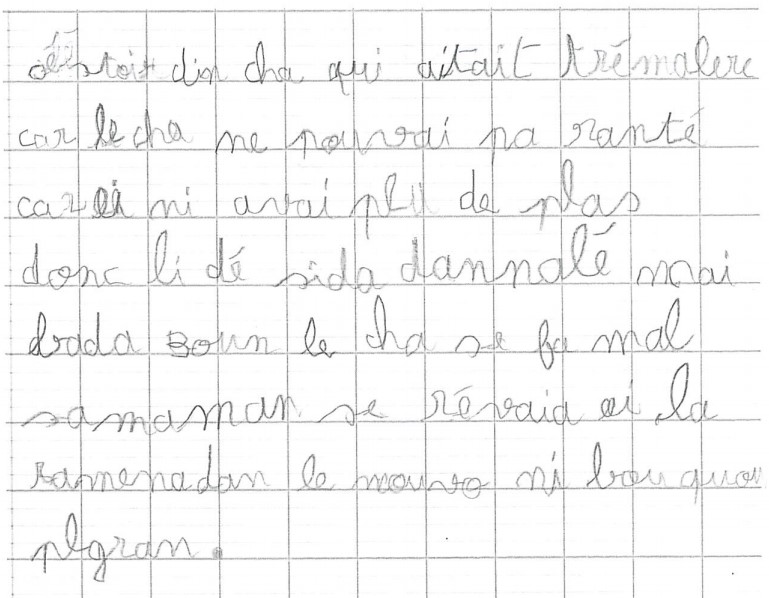 éstoir din cha qui aitait trémalere
car le cha ne pouvai pa ranté
car ei ni avai plu de plas
donc li dé sida dannalé mai
drada Boun le cha se fa mal
samaman se révaia ei la
ramenadan le nouvo ni bou quou
plgran.